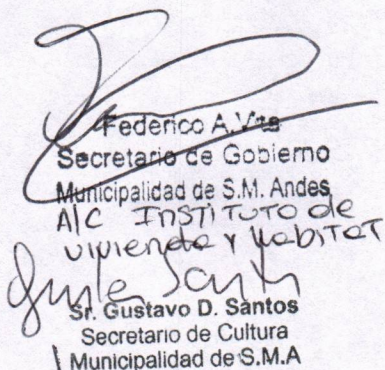 Federico A. Vita
Secretario de Gobierno
Municipalidad de S.M. Andes
A/C INSTITUTO de
vivienda y HabITAT
Sr. Gustavo D. Santos
Secretario de Cultura
Municipalidad de S.M.A